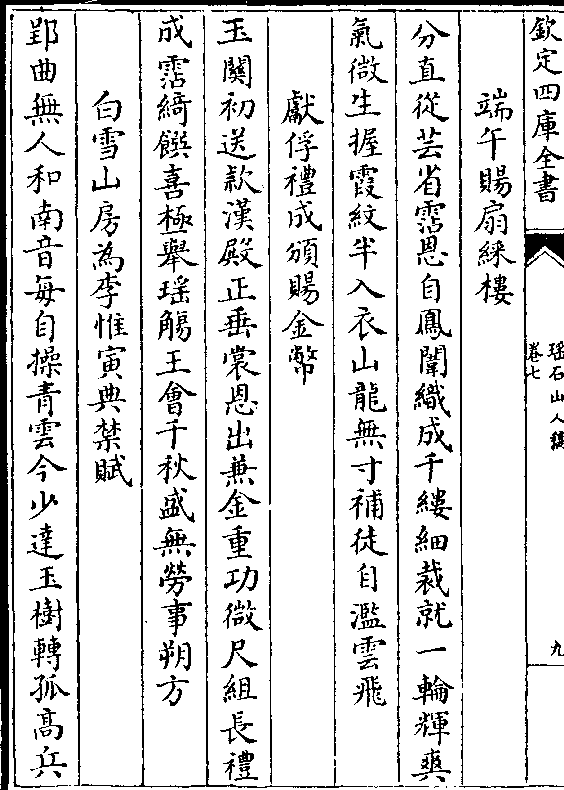 欽定四庫全書
瑤石山人稿
卷七
九
端午賜扇綵樓
分直從芸省霑恩自鳳闈織成千縷細裁就一輪輝爽
氣微生握霞紋半入衣山龍無寸補徒自濫雲飛
獻俘禮成頒賜金幣
玉關初送款漢殿正垂裳恩出兼金重功微尺組長禮
成霑綺饌喜極舉瑤觴王會千秋盛無勞事朔方
白雪山房為李惟寅典禁賦
郢曲無人和南音每自操青雲今少達玉樹轉孤高兵